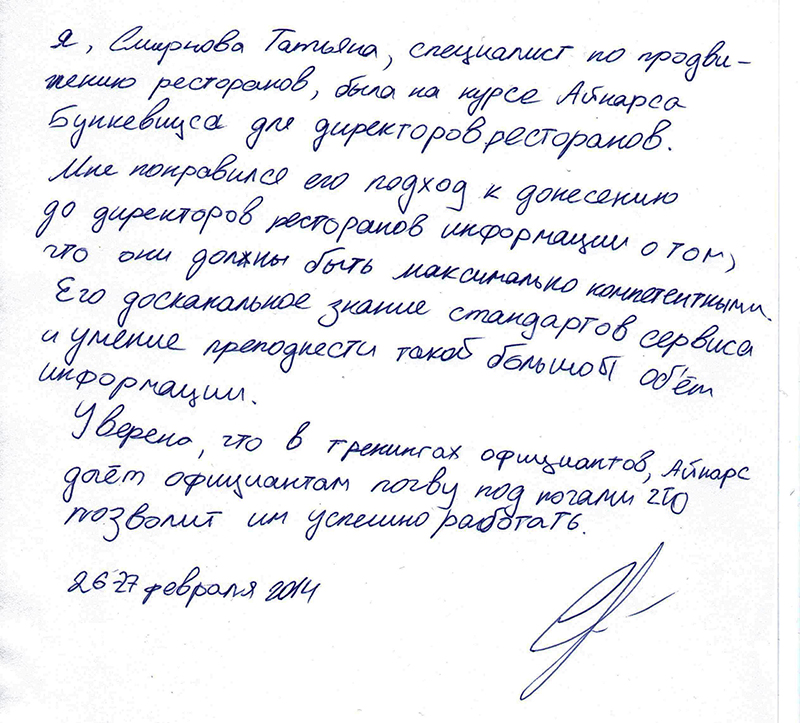 Я, Смирнова Татьяна, специалист по продви-
жению ресторанов, была на курсе Айнарса
Бункевицса для директоров ресторанов.
Мне понравился его подход к донесению
до директоров ресторанов информации о том,
что они должны быть максимально компетентными.
Его доскапальное знание стандартов сервиса
и умение преподнести такой большой объём
информации.
Уверена, что в тренингах официантов, Айнарс
даёт официантам почву под ногами это
позволит им успешно работать.
26-27 февраля 2014